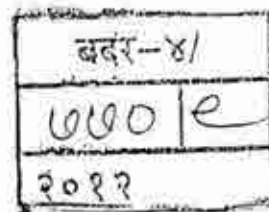 बदर-४/
७७० | ९
२०१२